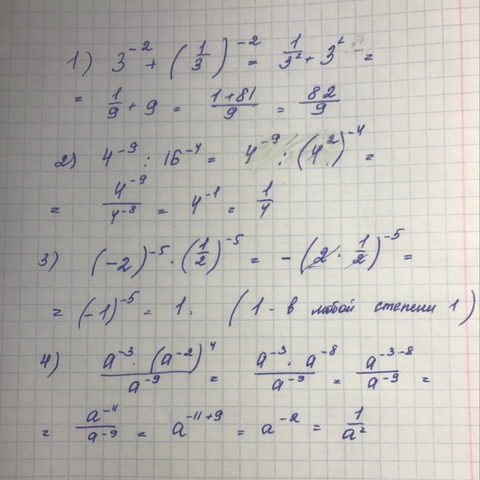 1) 3^-2 + (1/3)^-2 = 1/3^2 + 3^2 =
= 1/9 + 9 = (1+81)/9 = 82/9
2) 4^-9 : 16^-4 = 4^-9 : (4^2)^-4 =
= 4^-9/4^-8 = 4^-1 = 1/4
3) (-2)^-5 · (1/2)^-5 = -(2 · 1/2)^-5 =
= (-1)^-5 = 1. (1 - в любой степени 1)
4) (a^-3 · (a^-2)^4)/a^-9 = (a^-3 · a^-8)/a^-9 = a^-3-8/a^-9 =
= a^-4/a^-9 = a^-11+9 = a^-2 = 1/a^2